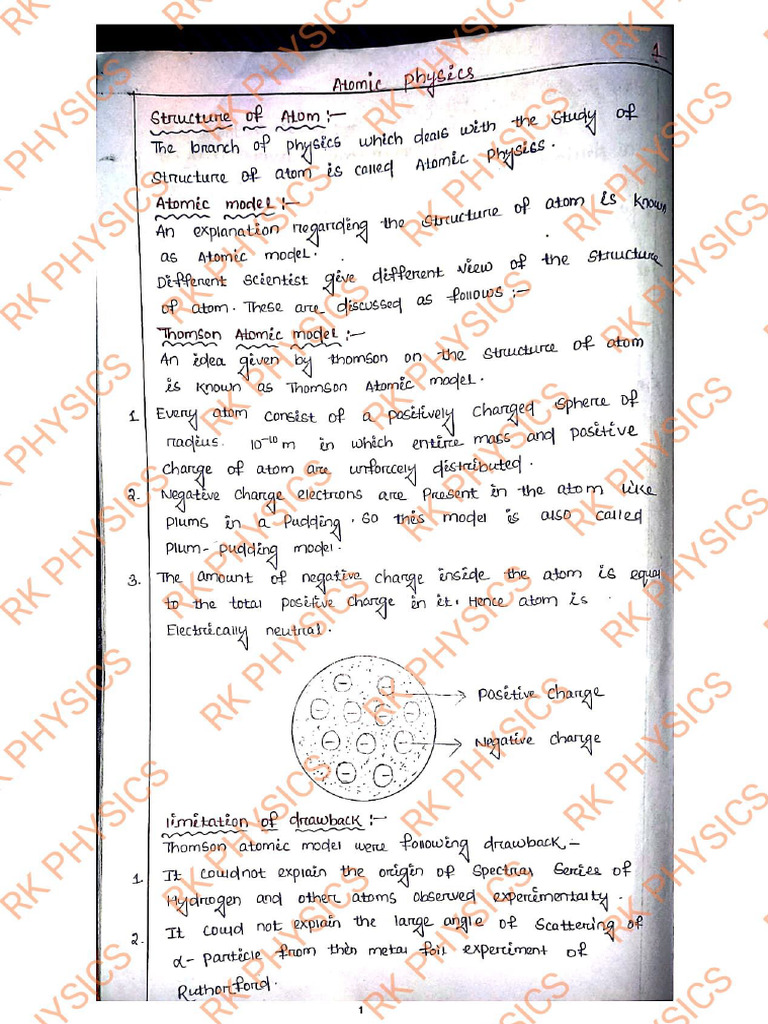 1
Atomic Physics
Structure of Atom :-
The branch of Physics which deals with the Study of
Structure of atom is called Atomic Physics.
Atomic model :-
An explanation regarding the structure of atom is known
as Atomic model.
Different scientist give different view of the structure
of atom. These are discussed as follows :-
Thomson Atomic model :-
An idea given by thomson on the structure of atom
is known as Thomson Atomic model.
1. Every atom consist of a positively charged sphere of
radius 10⁻¹⁰ m in which entire mass and positive
charge of atom are unforcely distributed.
2. Negative charge electrons are Present in the atom like
plums in a Pudding. So this model is also called
Plum-pudding model.
3. The amount of negative charge inside the atom is equal
to the total positive charge in it. Hence atom is
Electrically neutral.
Positive charge
Negative charge
limitation of drawback :-
Thomson atomic model were following drawback. -
1. It could not explain the origin of Spectral Series of
Hydrogen and other atoms observed experimentally.
2. It could not explain the large angle of Scattering of
α- Particle from thin metal foil experiment of
Rutherford.
1
RK PHYSICS